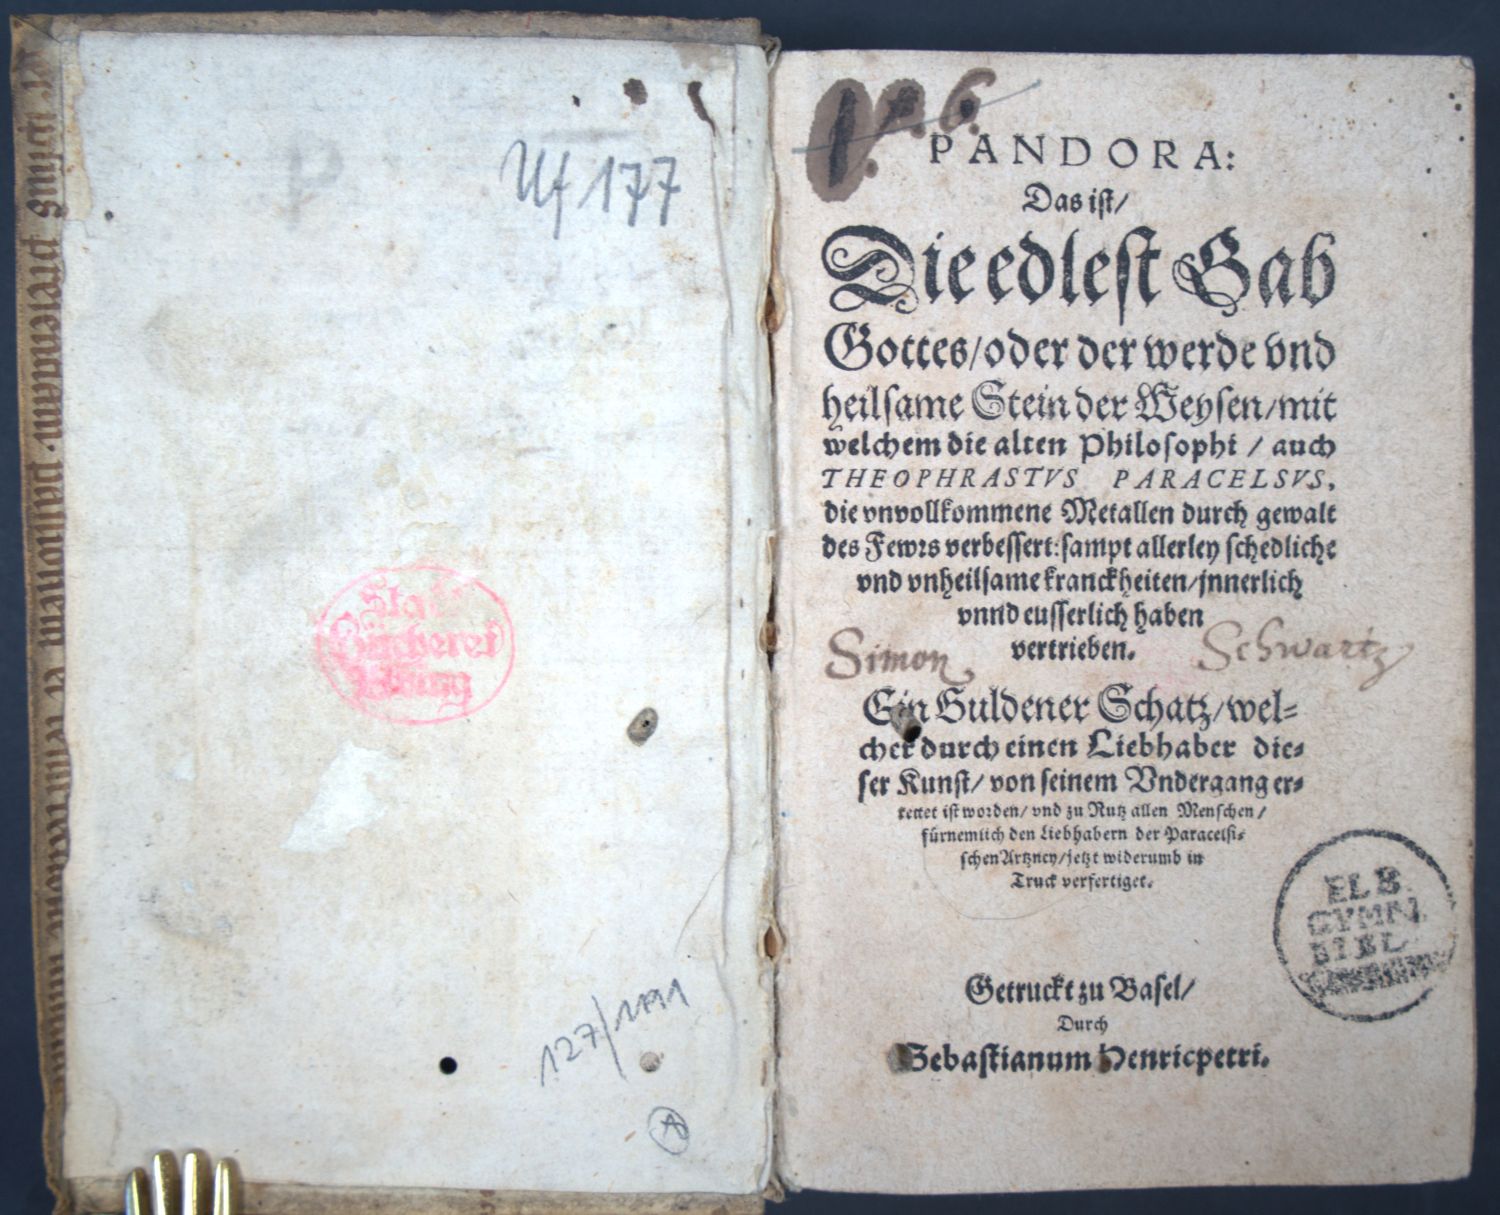 Uf 177
Stadt
Bücherei
Elbing
127/1891
A
PANDORA:
Das ist/
Die edlest Gab
Gottes/oder der werde vnd
heilsame Stein der Weysen/mit
welchem die alten Philosophi / auch
THEOPHRASTVS PARACELSVS,
die vnvollkommene Metallen durch gewalt
des Fewrs verbessert: sampt allerley schedliche
vnd vnheilsame kranckheiten/jnnerlich
vnnd eusserlich haben
vertrieben.
Simon Schwartz
Ein Guldener Schatz/wel=
cher durch einen Liebhaber die=
ser Kunst/ von seinem Vndergang er=
rettet ist worden/ vnd zu Nutz allen Menschen/
fürnemlich den Liebhabern der Paracelsi=
schen Artzney/jetzt widerumb in
Truck verfertiget.
ELB.
GYMN.
BIBL.
Getruckt zu Basel/
Durch
Sebastianum Henricpetri.